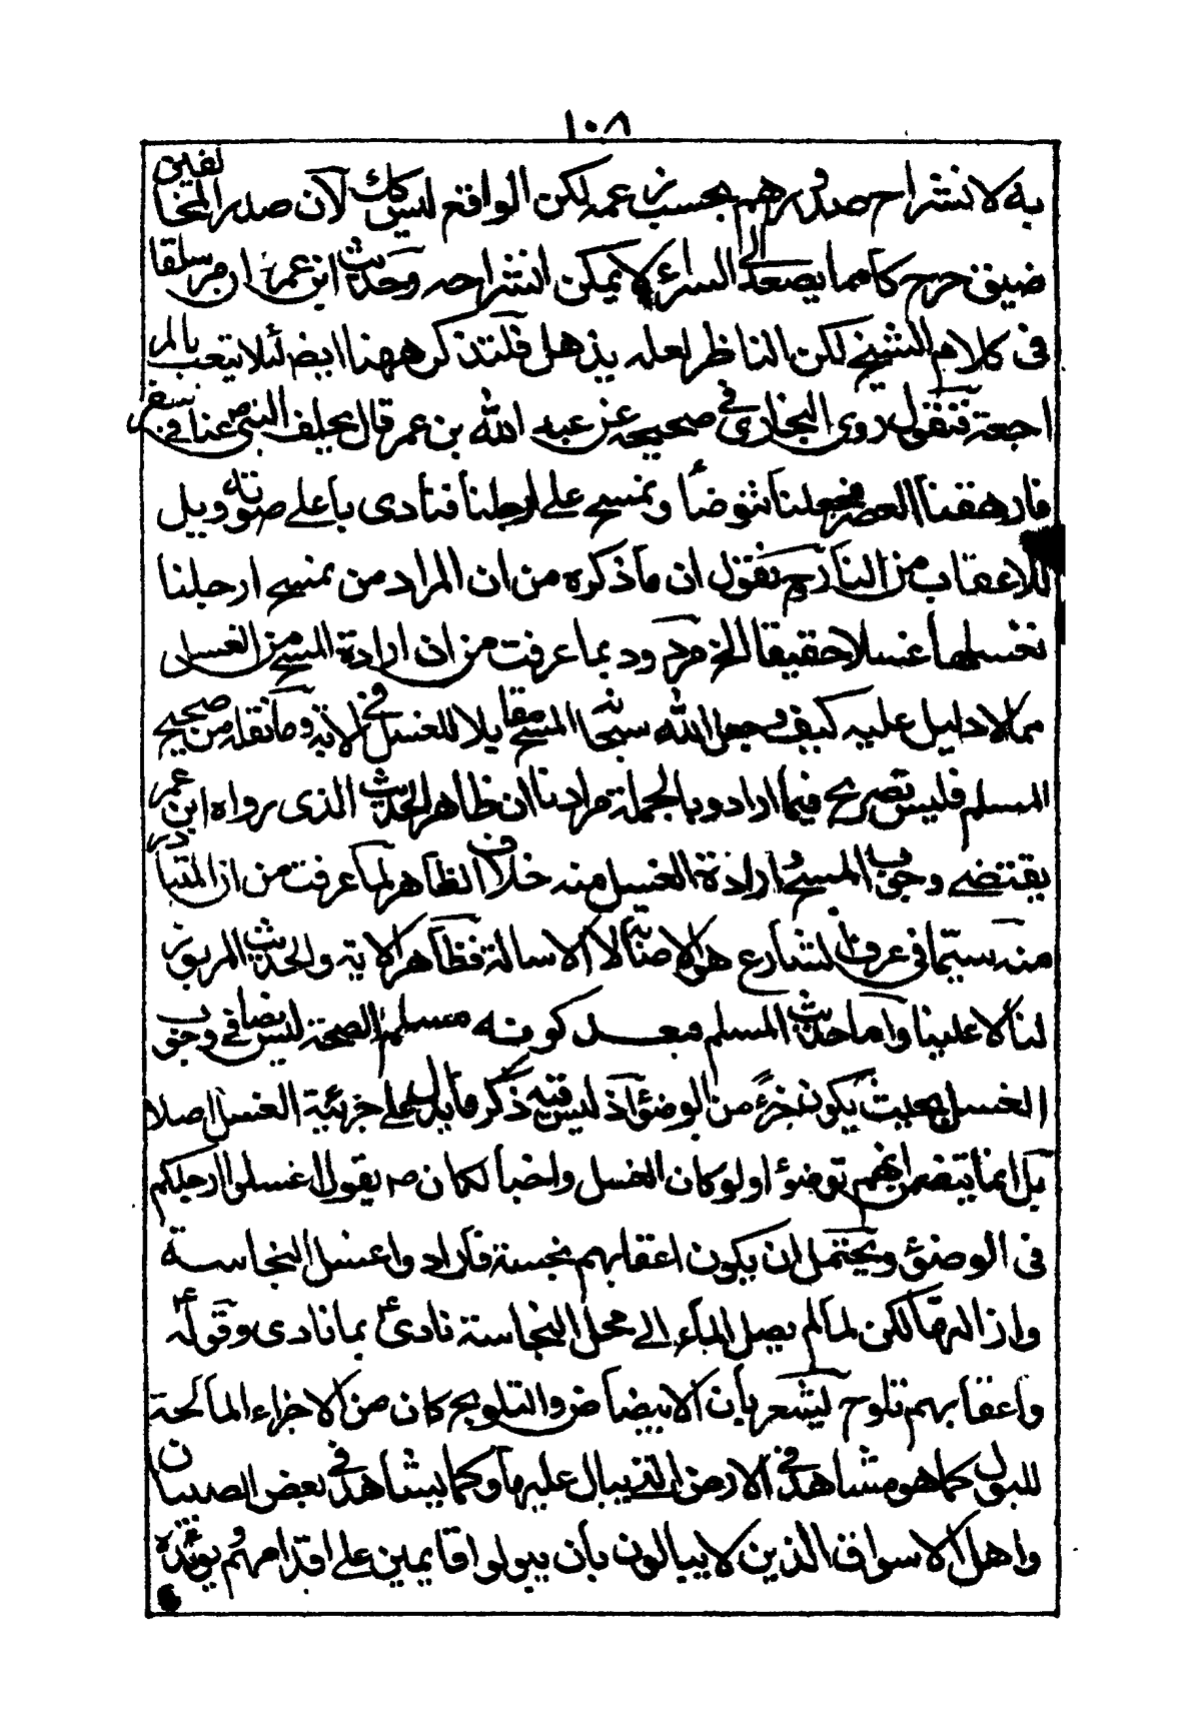 ١٠٨
به لانشراح صدورهم بحسب زعمه لكن الواقع ليس كك لان صدر المخالفين
ضيق حرج كانما يصعد الى السماء لا يمكن انشراحه وحديث ابن عمر ان مر سلفا
فى كلام الشيخ لكن الناظر لعله يذهل فلنتذكر ههنا ايض لئلا يتعب بالمر
اجعة فنقول روى البخارى فى صحيحه عن عبد الله بن عمر قال تخلف النبى ص عنا فى سفر
فارهقنا العصر فجعلنا نتوضأ ونمسح على ارجلنا فنادى باعلى صوته ويل
للاعقاب من النار ثم نقول ان ما ذكره من ان المراد من نمسح ارجلنا
نغسلها غسلا حقيقا الخ مردود بما عرفت من ان ارادة المسح من الغسل
مما لا دليل عليه كيف وجعل الله سبحانه المسح مقابلا للغسل فى الاية وما نقله من صحيح
المسلم فليس تصريح فيما اراد وبالجملة مرادنا ان ظاهر الحديث الذى رواه ابن عمر
يقتضى وجوب المسح وارادة الغسل منه خلاف الظاهر لما عرفت من ان المتبادر
منه سيما فى عرف الشارع هو الاصابة لا الاسالة فظاهر الاية والحديث المزبور
لنا لا علينا واما حديث المسلم فبعد كونه مسلم الصحة ليس نصا فى وجوب
الغسل بحيث يكون جزء من الوضوء اذ ليس فيه ذكر ما يدل على جزئية الغسل اصلا
بل انما يتضمن انهم توضؤا ولو كان الغسل واجبا لكان ص يقول اغسلوا ارجلكم
فى الوضوء ويحتمل ان يكون اعقابهم نجسة فاراد واغسل النجاسة
وازالتها لكن لما لم يصل الماء الى محل النجاسة نادى ع بما نادى وقوله ع
واعقابهم تلوح ليشعر بان الابيضاض والتلويح كان من الاجزاء المالحة
للبول كما هو مشاهد فى الارض التى يبال عليها وكما يشاهد فى بعض الصبيان
واهل الاسواق الذين لا يبالون بان يبولوا قايمين على اقدامهم ويؤيده